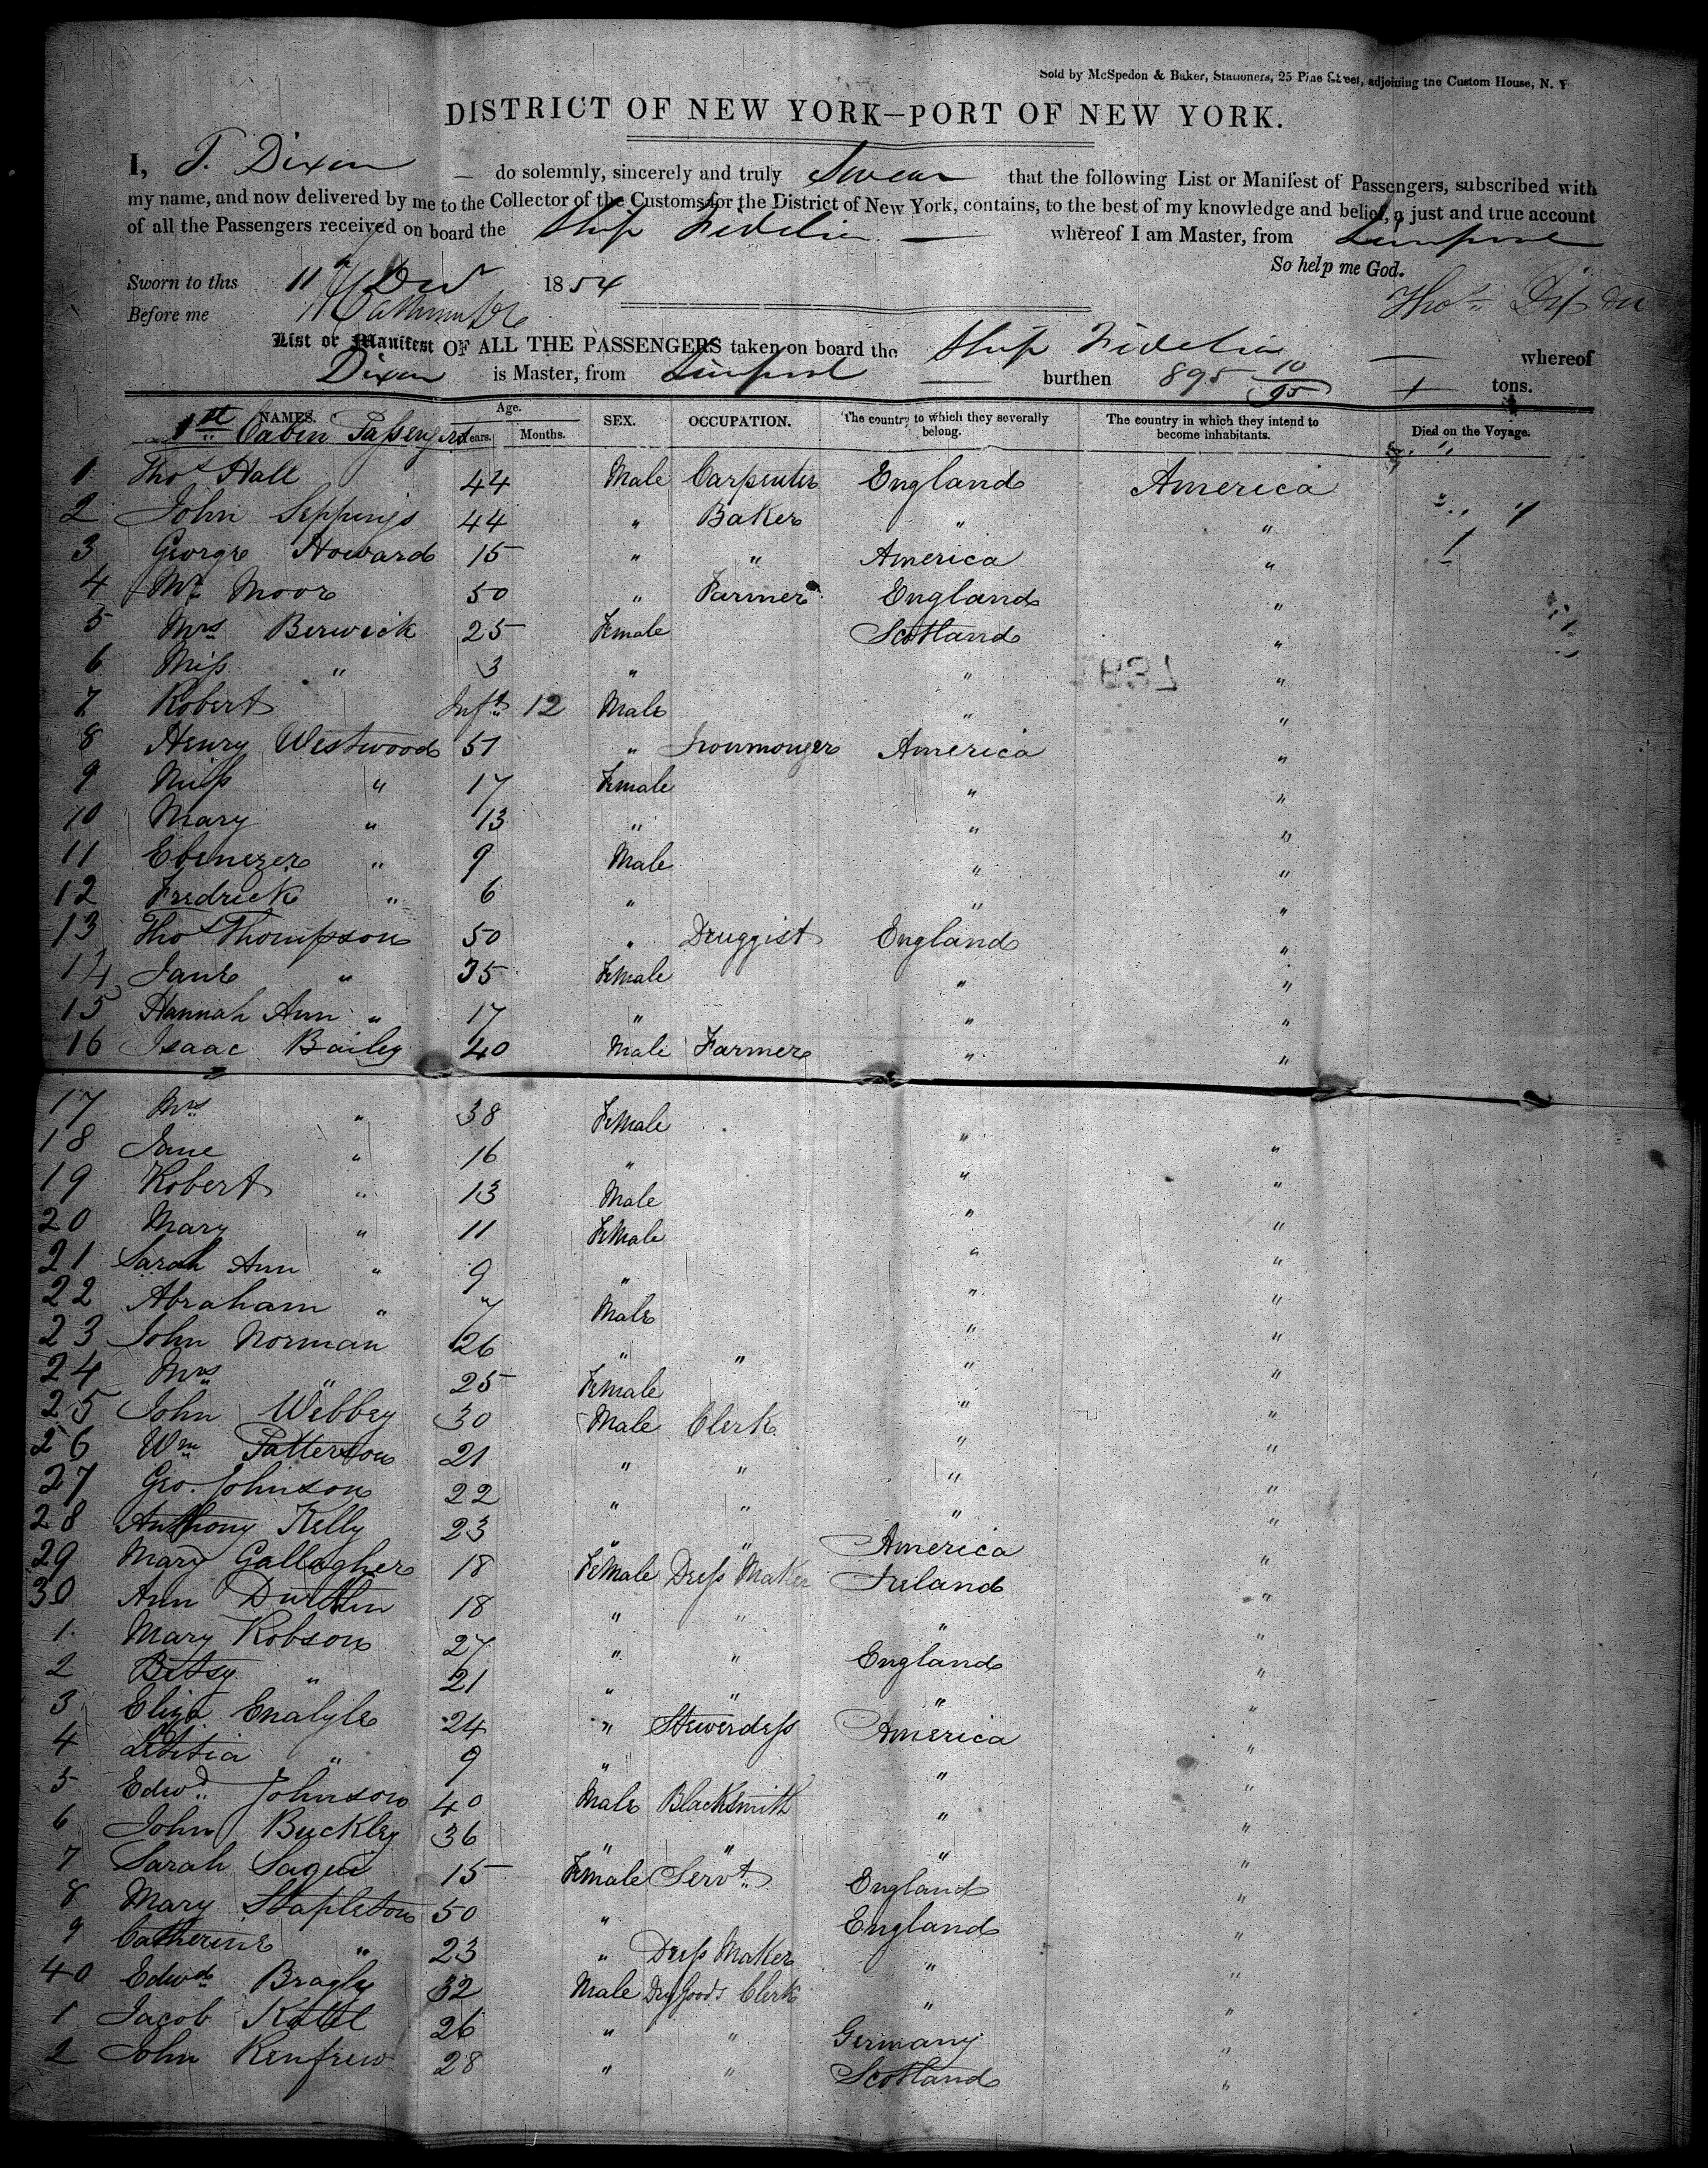 Sold by McSpedon & Baker, Stationers, 25 Pine Street, adjoining the Custom House, N. Y
DISTRICT OF NEW YORK—PORT OF NEW YORK.
I, T. Dixon — do solemnly, sincerely and truly Swear that the following List or Manifest of Passengers, subscribed with
my name, and now delivered by me to the Collector of the Customs for the District of New York, contains, to the best of my knowledge and belief, a just and true account
of all the Passengers received on board the Ship Fidelia — whereof I am Master, from Liverpool
So help me God.
Sworn to this 11th Dec 1854
Before me
Thos Dixon
List or Manifest OF ALL THE PASSENGERS taken on board the Ship Fidelia — whereof
Dixon is Master, from Liverpool — burthen 895 10/95 tons.
NAMES. Age. Years. Months. SEX. OCCUPATION. The country to which they severally belong. The country in which they intend to become inhabitants. Died on the Voyage.
1st Cabin Passengers
1 Thos Hall 44 Male Carpenter England America
2 John Seppings 44 " Baker " "
3 George Howard 15 " " America "
4 Mr Moor 50 " Farmer England "
5 Mrs Berwick 25 Female Scotland "
6 Miss " 3 " " "
7 Robert Inft 12 Male " "
8 Henry Westwood 51 " Ironmonger America "
9 Miss " 17 Female " "
10 Mary " 13 " " "
11 Ebenezer " 9 Male " "
12 Fredrick " 6 " " "
13 Thos Thompson 50 " Druggist England "
14 Jane " 35 Female " "
15 Hannah Ann " 17 " " "
16 Isaac Bailey 40 Male Farmer " "
17 Mrs " 38 Female " "
18 Jane " 16 " " "
19 Robert " 13 Male " "
20 Mary " 11 Female " "
21 Sarah Ann " 9 " " "
22 Abraham " 7 Male " "
23 John Norman 26 " " " "
24 Mrs " 25 Female " "
25 John Webbey 30 Male Clerk " "
26 Wm Patterson 21 " " " "
27 Geo. Johnson 22 " " " "
28 Anthony Kelly 23 " " America "
29 Mary Gallagher 18 Female Dress Maker Ireland "
30 Ann 18 " " " "
1 Mary Robson 27 " " England "
2 Betsy " 21 " " " "
3 Eliza 24 " Stewerdess America "
4 Letitia " 9 " " "
5 Edwd Johnson 40 Male Blacksmith " "
6 John Buckley 36 " " " "
7 Sarah Saqui 15 Female Servt England "
8 Mary Stapleton 50 " England "
9 Catherine " 23 " Dress Maker " "
40 Edwd 32 Male Dry Goods Clerk " "
1 Jacob 26 " " Germany "
2 John Renfrew 28 " " Scotland "